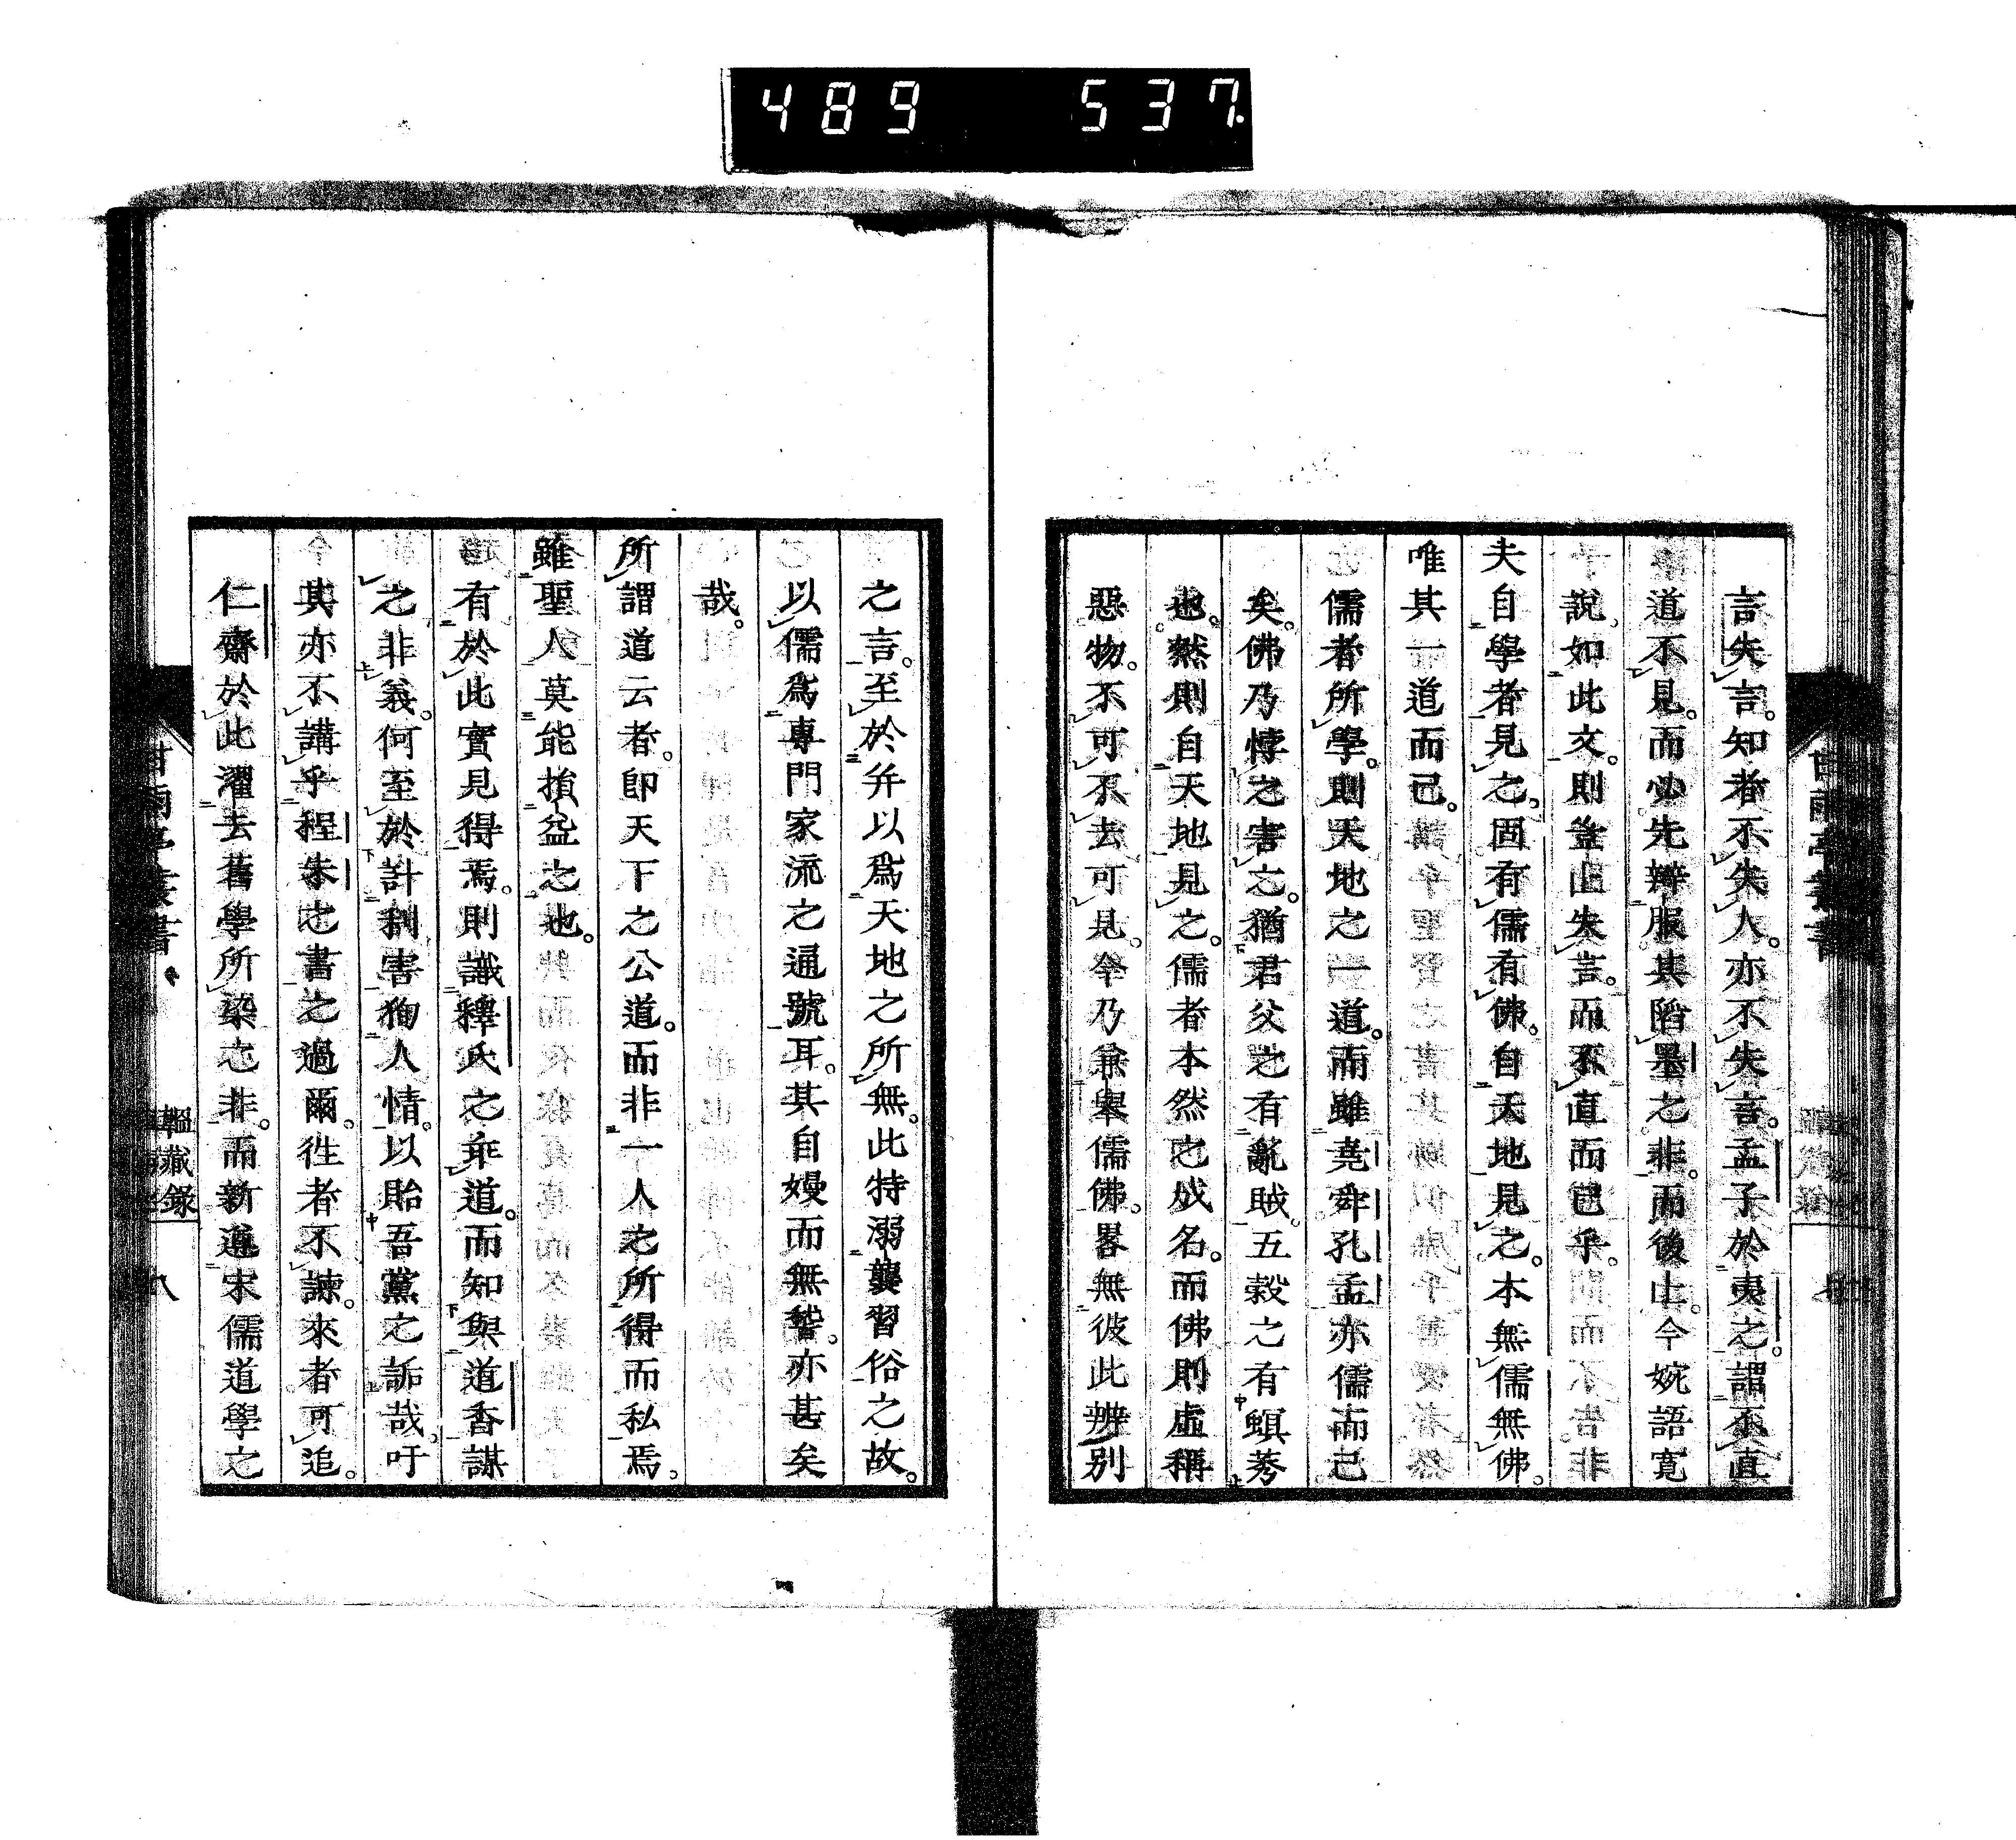 489 537
言失言。知者不失人。亦不失言。孟子於夷之。謂不直
道不見。而必先辨服其陷墨之非。而後止。今婉語寛
說如此文。則啻失言。而不直而已乎。
夫自學者見之。固有儒有佛。自天地見之。本無儒無佛。
唯其一道而已。
儒者所學。則天地之一道。而雖堯舜孔孟亦儒而已
矣。佛乃悖之害之。猶君父之有亂賊。五穀之有螟莠
也。然則自天地見之。儒者本然之成名。而佛則虛稱
惡物。不可不去可見。今乃兼舉儒佛。畧無彼此辨別
之言。至於幷以爲天地之所無。此特溺襲習俗之故。
以儒爲專門家流之通號耳。其自嫚而無誓。亦甚矣
哉。
所謂道云者。即天下之公道。而非一人之所得而私焉。
雖聖人莫能損益之也。
有於此實見得焉。則識釋氏之乖道。而知與道香謀
之非義。何至於計利害狥人情。以貽吾黨之詬哉。吁
其亦不講乎程朱之書之過爾。徃者不諫。來者可追。
仁齋於此濯去舊學所染之非。而新遵宋儒道學之
甘雨亭叢書
韞藏錄
八